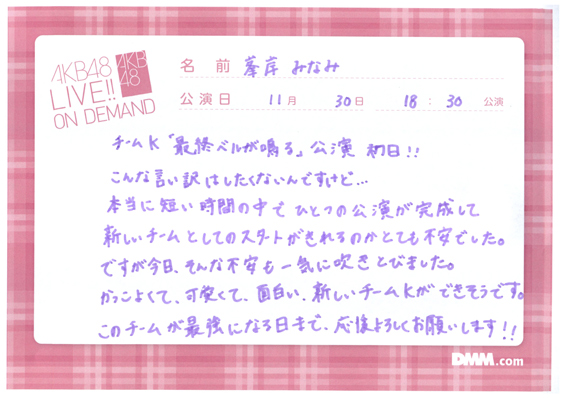 AKB48
LIVE!!
ON DEMAND
AKB
48
名前 峯岸 みなみ
公演日 11月 30日 18:30 公演
チームK「最終ベルが鳴る」公演 初日!!
こんな言い訳はしたくないんですけど…
本当に短い時間の中でひとつの公演が完成して
新しいチームとしてのスタートがきれるのかとても不安でした。
ですが今日、そんな不安も一気に吹きとびました。
かっこよくて、可愛くて、面白い、新しいチームKができそうです。
このチームが最強になる日まで、応援よろしくお願いします!!
DMM.com